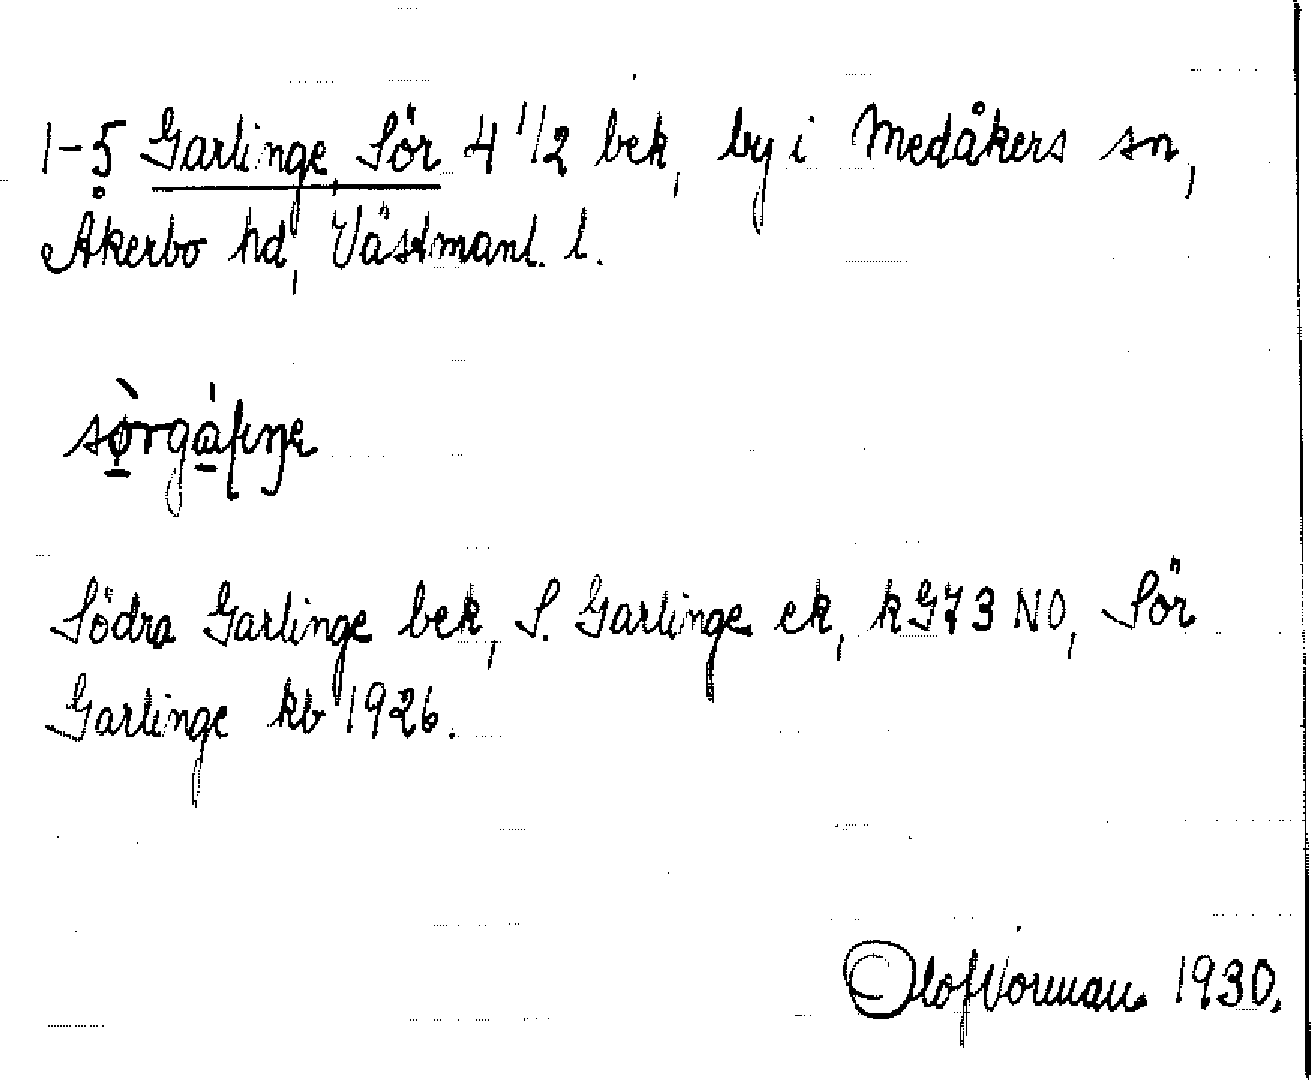 1-5 Garlinge, Sör 4 1/2 bek, by i Medåkers sn,
Åkerbo hd, Västmanl. l.
Södra Garlinge bek, S. Garlinge ek, kG73 NO, Sör
Garlinge kb 1926.
Olof Vorman 1930.